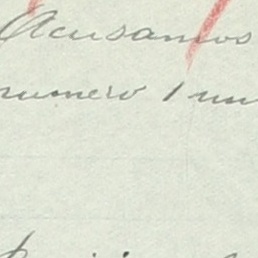 Acusamos
numero 1 un